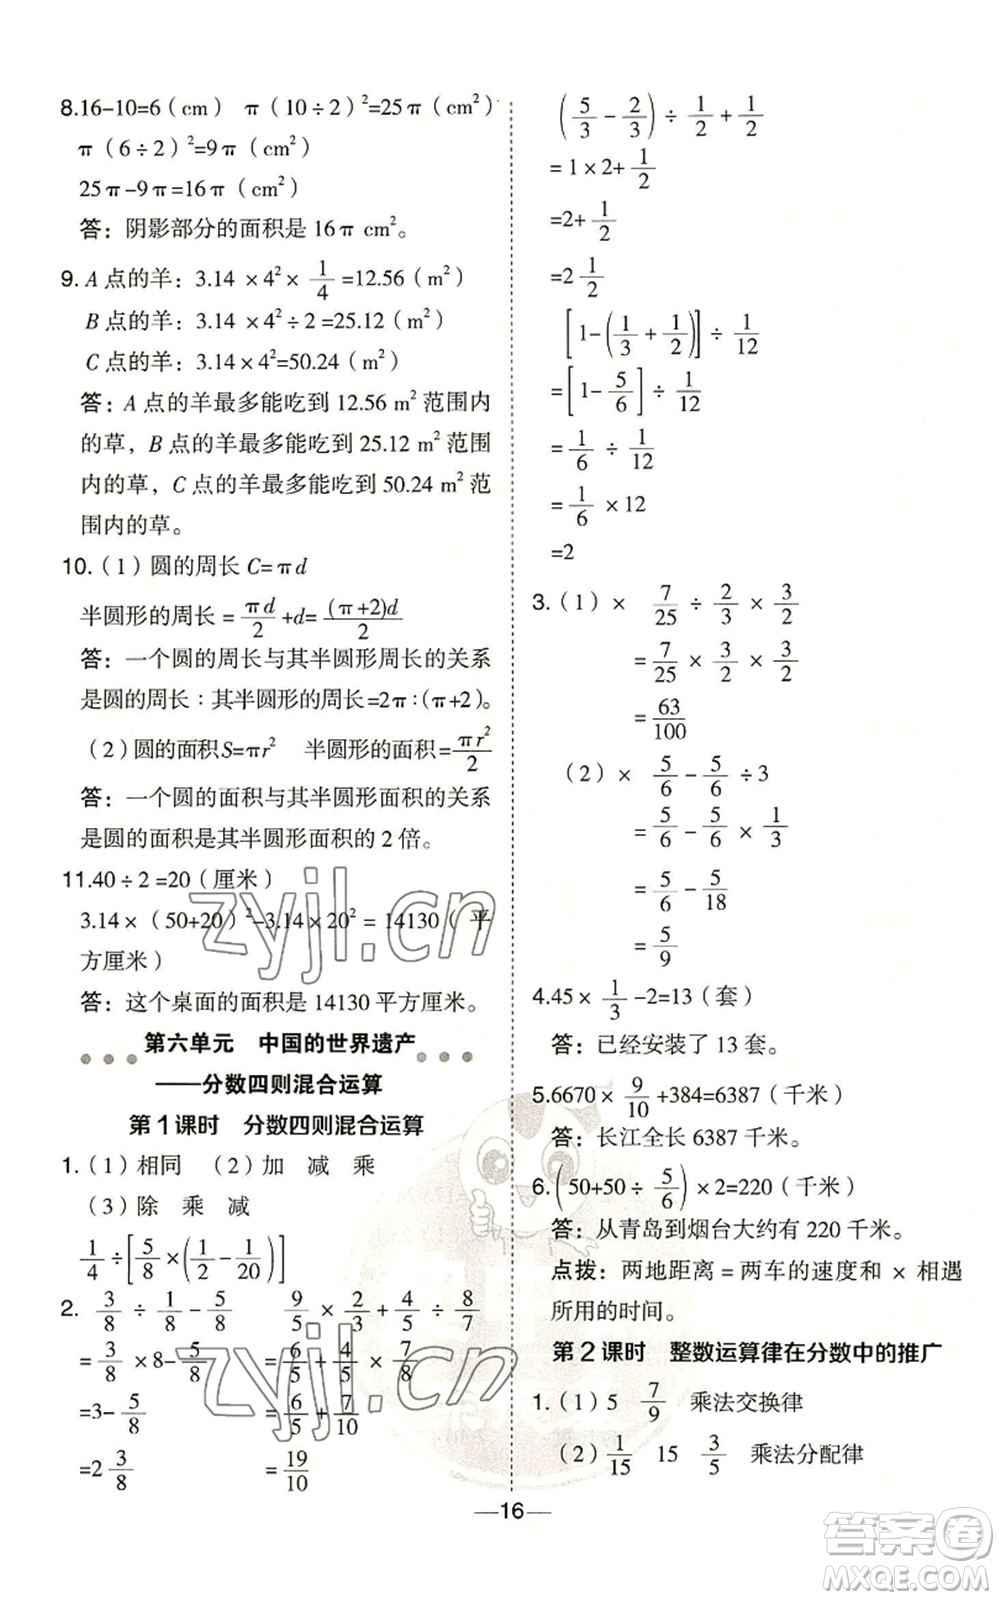 8.16-10=6（cm） π（10÷2）²=25π（cm²）
π（6÷2）²=9π（cm²）
25π-9π=16π（cm²）
答：阴影部分的面积是 16π cm²。
9. A 点的羊：3.14×4²×1/4=12.56（m²）
B 点的羊：3.14×4²÷2=25.12（m²）
C 点的羊：3.14×4²=50.24（m²）
答：A 点的羊最多能吃到 12.56 m² 范围内
的草，B 点的羊最多能吃到 25.12 m² 范围
内的草，C 点的羊最多能吃到 50.24 m² 范
围内的草。
10.（1）圆的周长 C=πd
半圆形的周长=πd/2+d=(π+2)d/2
答：一个圆的周长与其半圆形周长的关系
是圆的周长：其半圆形的周长=2π：（π+2）。
（2）圆的面积S=πr² 半圆形的面积=πr²/2
答：一个圆的面积与其半圆形面积的关系
是圆的面积是其半圆形面积的 2 倍。
11.40÷2=20（厘米）
3.14×（50+20）²-3.14×20²=14130（平
方厘米）
答：这个桌面的面积是 14130 平方厘米。
第六单元 中国的世界遗产
——分数四则混合运算
第 1 课时 分数四则混合运算
1.（1）相同 （2）加 减 乘
（3）除 乘 减
1/4÷[5/8×(1/2-1/20)]
2. 3/8÷1/8-5/8 9/5×2/3+4/5÷8/7
=3/8×8-5/8 =6/5+4/5×7/8
=3-5/8 =6/5+7/10
=2 3/8 =19/10
(5/3-2/3)÷1/2+1/2
=1×2+1/2
=2+1/2
=2 1/2
[1-(1/3+1/2)]÷1/12
=[1-5/6]÷1/12
=1/6÷1/12
=1/6×12
=2
3.（1）× 7/25÷2/3×3/2
=7/25×3/2×3/2
=63/100
（2）× 5/6-5/6÷3
=5/6-5/6×1/3
=5/6-5/18
=5/9
4.45×1/3-2=13（套）
答：已经安装了 13 套。
5.6670×9/10+384=6387（千米）
答：长江全长 6387 千米。
6.(50+50÷5/6)×2=220（千米）
答：从青岛到烟台大约有 220 千米。
点拨：两地距离=两车的速度和×相遇
所用的时间。
第 2 课时 整数运算律在分数中的推广
1.（1）5 7/9 乘法交换律
（2）1/15 15 3/5 乘法分配律
—16—
zyjl.cn
zyjl.cn
答案圈
MXQE.COM